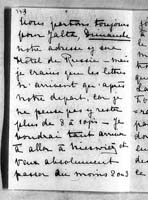 Nous partons toujours
pour Yalta Dimanche
notre adresse y sera
Hôtel de Russie - mais
je crains que les lettres
n'arrivent qu'après
notre départ, car je
ne pense pas y rester
plus de 8 à 10 jrs - je
voudrai tant arriver
à aller à Nieswiez et
veux absolument
passer du moins 2 ou 3